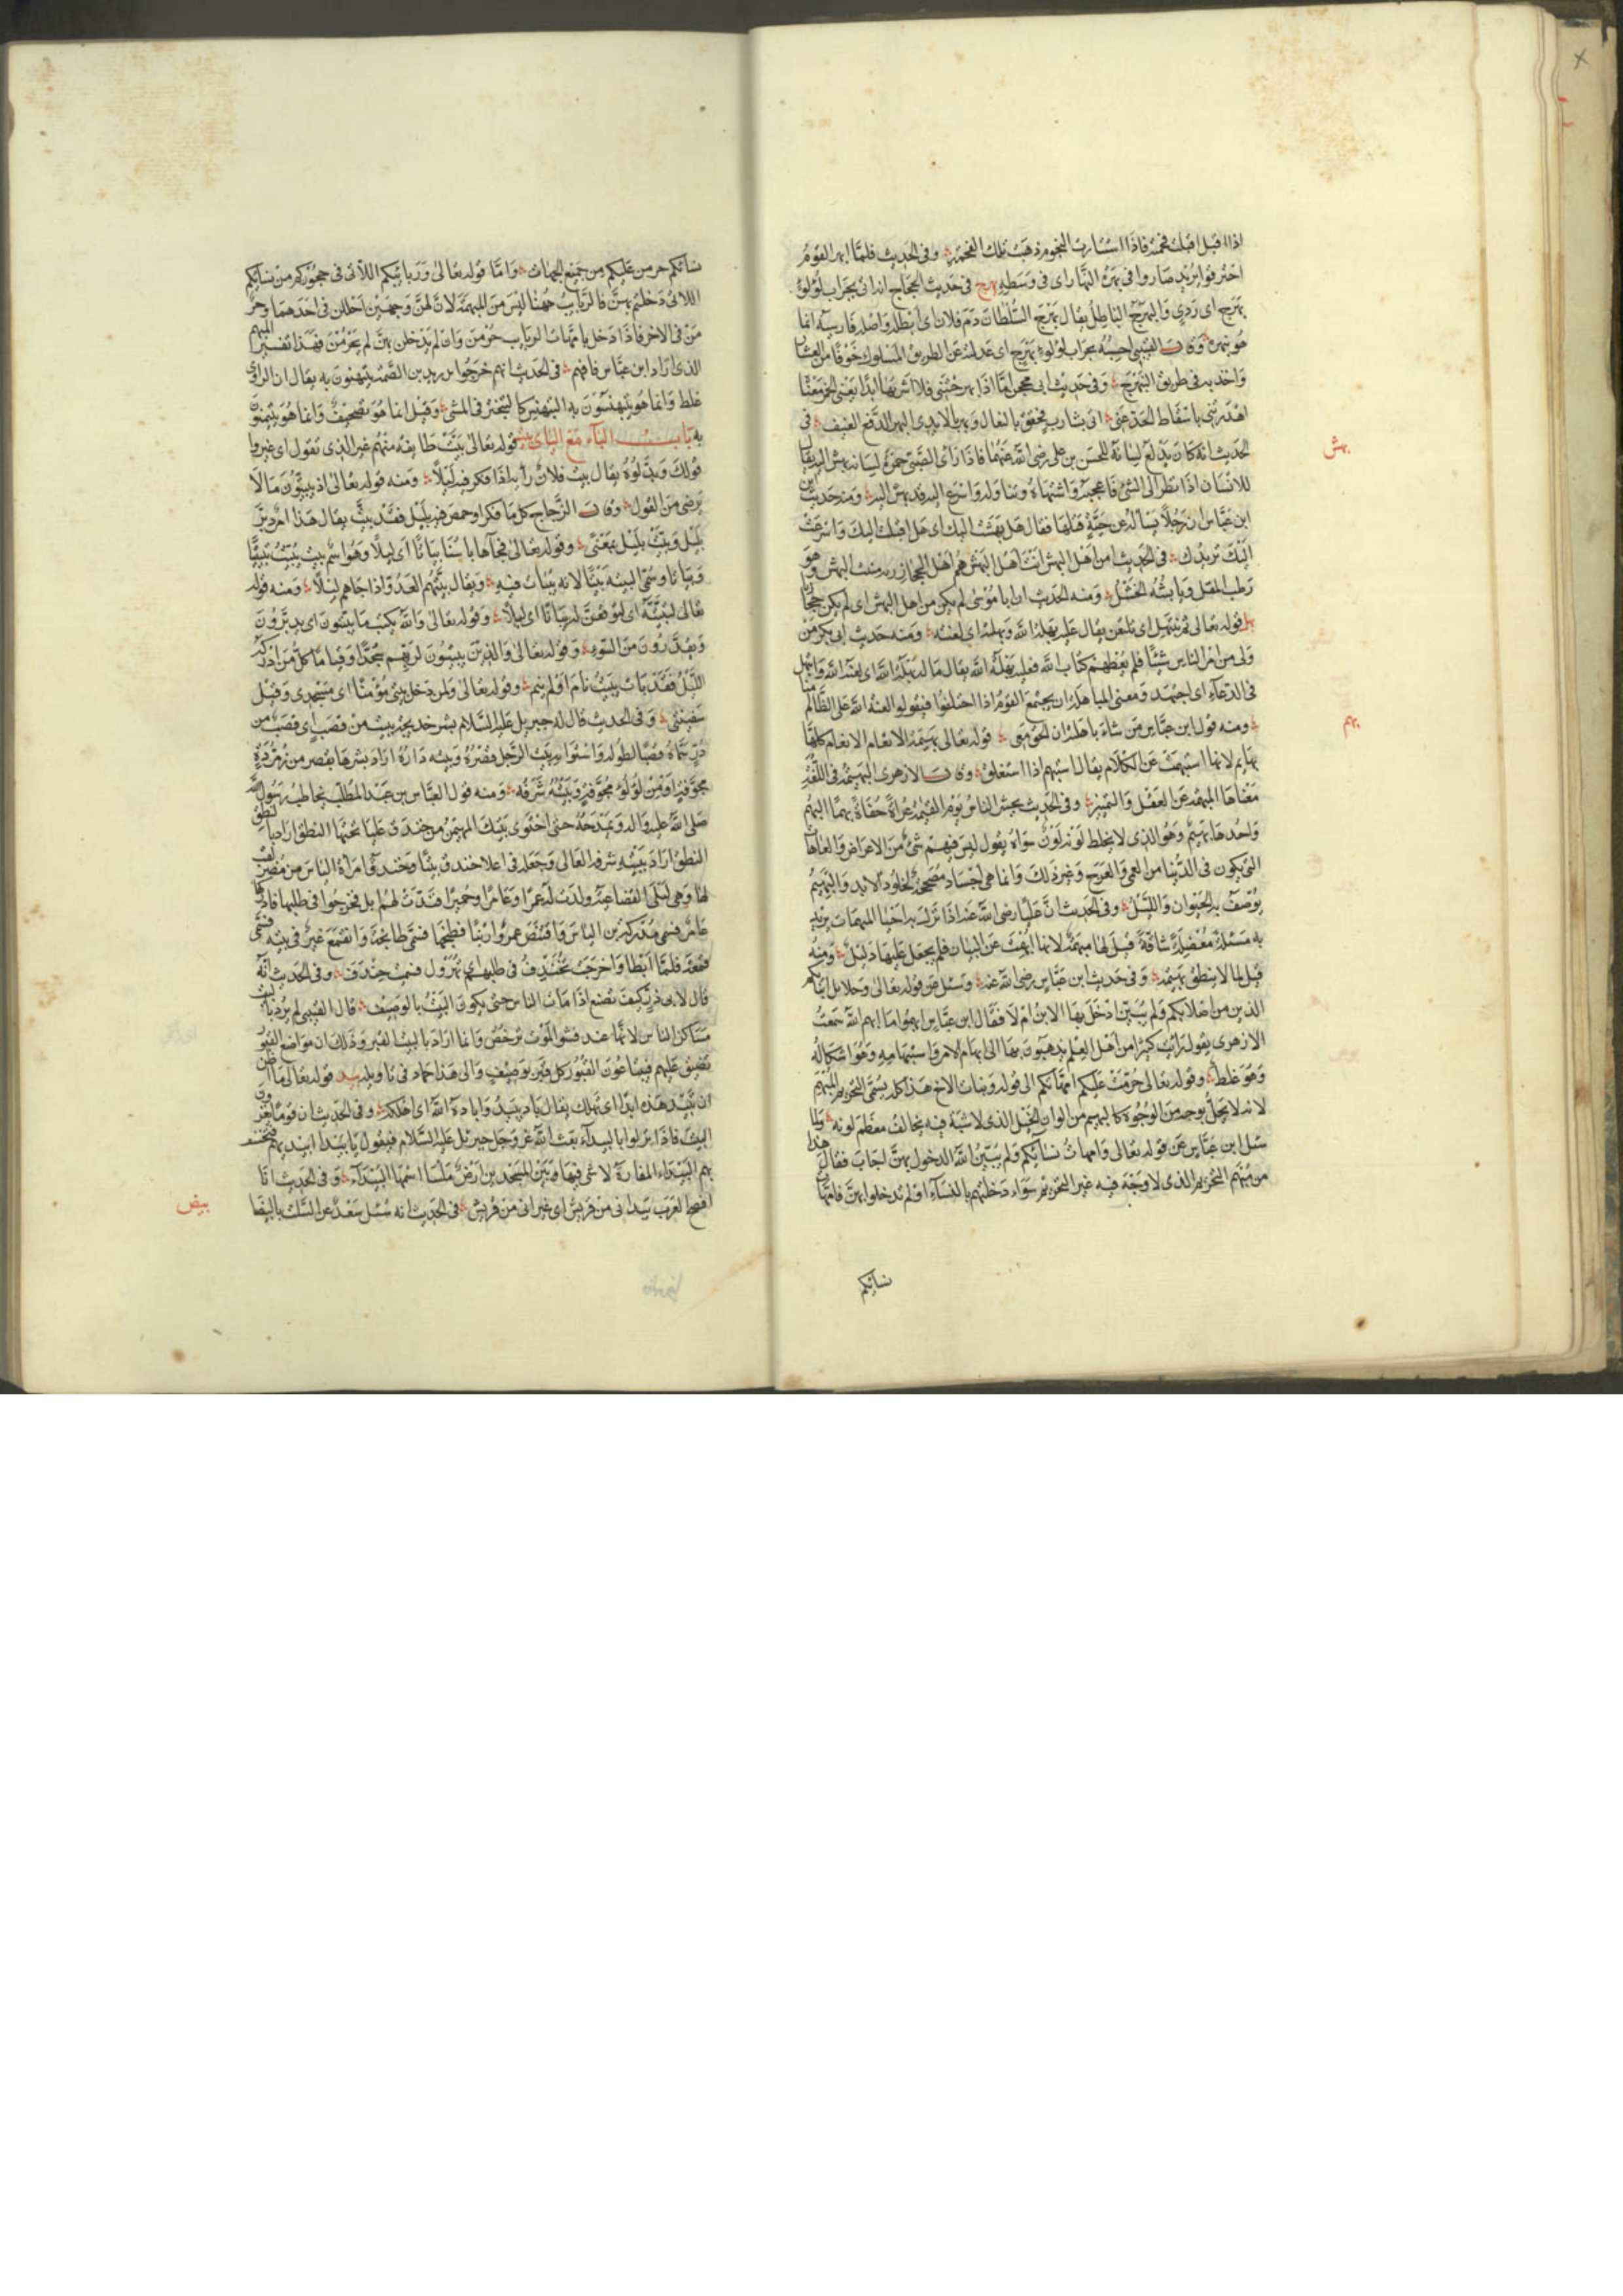 اذا اقبل اقبلت فحمته فاذا استنارت النجوم ذهبت تلك الفحمة وفى الحديث فلما ابهر القوم
احترقوا يريد صاروا فى بهرة النهار اى فى وسطه بهرج فى حديث الحجاج انه اتى بجراب لؤلؤ
بهرج اى ردى والبهرج الباطل يقال بهرج السلطان دم فلان اى ابطله واصله فارسية انما
هو نبهره وقال القتيبى احسبه بجراب لؤلؤ بهرج اى عدل به عن الطريق المسلوك خوفا من العشار
واخذ به فى طريق النبهرج وفى حديث ابى محجن اما اذا بهرجتنى فلا اشربها ابدا يعنى الخمر معناه
اهدرتنى باسقاط الحد عنى اتى بشارب فخفق بالنعال وبهز بالايدى البهز الدفع العنيف فى
الحديث انه كان يدلع لسانه للحسن بن على رضى الله عنهما فاذا راى الصبى حمرة لسانه بهش اليه يقال
للانسان اذا نظر الى الشئ فاعجبه واشتهاه وتناوله واسرع اليه قد بهش اليه ومنه حديث
ابن عباس ان رجلا يساله عن حية قتلها فقال هل بهشت اليك اى هل اقبلت اليك واسرعت
اليك تريدك فى الحديث امن اهل البهش انت اهل البهش هم اهل الحجاز به منبت البهش وهو
رطب المقل ويابسه الخشل ومنه الحديث ان ابا موسى لم يكن من اهل البهش اى لم يكن حجازيا
بهل قوله تعالى ثم نبتهل اى نلتعن يقال عليه بهلة الله وبهلته اى لعنته ومنه حديث ابى بكر من
ولى من امر الناس شيئا فلم يعطهم كتاب الله فعليه بهلة الله يقال ماله بهله الله اى لعنه الله وابتهل
فى الدعاء اى اجتهد ومعنى المباهلة ان يجتمع القوم اذا اختلفوا فيقولوا لعنة الله على الظالم منا
ومنه قول ابن عباس من شاء باهلته ان الحق معى قوله تعالى بهيمة الانعام الانعام كلها
بهايم لانها استبهمت عن الكلام يقال استبهم اذا استغلق وقال الازهرى البهيمة فى اللغة
معناها المبهمة عن العقل والتمييز وفى الحديث يحشر الناس يوم القيمة عراة حفاة بهما البهم
واحدها بهيم وهو الذى لا يخلط لونه لون سواه يقول ليس فيهم شئ من الاعراض والعاهات
التى يكون فى الدنيا من العمى والعرج وغير ذلك وانما هى اجساد مصححة لخلود الابد والبهيم
يوصف به الحيوان والليل وفى الحديث ان عليا رضى الله عنه اذا نزل به احدى المبهمات يريد
به مسئلة معضلة شاقة قيل لها مبهمة لانها ابهمت عن البيان فلم يجعل عليها دليل ومنه
قيل لما لا ينطق بهيمة وفى حديث ابن عباس رضى الله عنه وسئل عن قوله تعالى وحلايل ابنائكم
الذين من اصلابكم ولم يبين ادخل بها الابن ام لا فقال ابن عباس ابهموا ما ابهم الله سمعت
الازهرى يقول رايت كثيرا من اهل العلم يذهبون بها الى ابهام الامر واستبهامه وهو اشكاله
وهو غلط وقوله تعالى حرمت عليكم امهاتكم الى قوله وبنات الاخ هذا كله يسمى التحريم المبهم
لانه لا يحل بوجه من الوجوه كالبهيم من الوان الخيل الذى لا شية فيه يخالف معظم لونه ولما
سئل ابن عباس عن قوله تعالى وامهات نسائكم ولم يبين الله الدخول بهن اجاب فقال هذا
من مبهم التحريم الذى لا وجه فيه غير التحريم سواء دخلتم بالنساء او لم تدخلوا بهن فامهات
نسائكم
بهش
بهم
نسائكم حرمن عليكم من جميع الجهات واما قوله تعالى وربائبكم اللاتى فى حجوركم من نسائكم
اللاتى دخلتم بهن فالربائب ههنا ليس من المبهمة لان لهن وجهين احللن فى احدهما وحر
من فى الاخر فاذا دخل بامهات الربايب حرمن وان لم يدخلن بهن لم يحرمن فهذا تفسير المبهم
الذى اراد ابن عباس فافهم فى الحديث انهم خرجوا بدريد بن الصمة يتبهنون به يقال ان الراوى
غلط وانما هو يتبهنسون به التبهنس كالتبختر فى المشى وقيل انما هو تصحيف وانما هو يتيمنون
به باب الباء مع الياء بيت قوله تعالى بيت طايفة منهم غير الذى تقول اى غيروا
قولك وبدلوه يقال بيت فلان رأيه اذا فكر فيه ليلا ومنه قوله تعالى اذ يبيتون ما لا
يرضى من القول وقال الزجاج كل ما فكر او خيض فيه بليل فقد بيت يقال هذا امر دبر
بليل وبيت بليل بمعنى وقوله تعالى فجآها باسنا بياتا اى ليلا وهو اسم بيت يبيت تبييتا
وبياتا وسمى البيت بيتا لانه يبات فيه ويقال بيتهم العدو اذا جاءهم ليلا ومنه قوله
تعالى لنبيتنه اى لنوقعن له بياتا اى ليلا وقوله تعالى والله يكتب ما يبيتون اى يدبرون
ويقدرون من السوء وقوله تعالى والذين يبيتون لربهم سجدا وقياما كل من ادركه
الليل فقد بات يبيت نام او لم ينم وقوله تعالى ولمن دخل بيتى مؤمنا اى مسجدى وقيل
سفينتى وفى الحديث قال له جبريل عليه السلام بشر خديجة ببيت من قصب اى قصب من
مجوفة او من لؤلؤ مجوفة وبيته شرفه ومنه قول العباس بن عبد المطلب يخاطب رسول الله
صلى الله عليه واله ويمدحه حتى احتوى بيتك المهيمن من خندف علياء تحتها النطق اراد بالنطق
النطق اراد ببيته شرفه العالى وجعله فى اعلا خندف بيتا وخندف امراة الياس من مضر لقب
لها وهى ليلى القضاعية ولدت له عمرا وعامرا وعميرا فندت لهم ابل فخرجوا فى طلبها فادركها
عامر فسمى مدركة بن الياس واقتنص عمرو ارنبا فطبخها فسمى طابخة وانقمع عمير فى بيته فسمى
قمعة فلما ابطا واخرجت تخندف فى طلبهم اى تهرول فسميت خندف وفى الحديث انه
قال لابى ذر كيف تصنع اذا مات الناس حتى يكون البيت بالوصيف قال القتيبى لم يرد بالبيت
مساكن الناس لانها عند فشو الموت ترخص وانما اراد بالبيت القبر وذلك ان مواضع القبور
تضيق عليهم فيبتاعون القبور كل قبر بوصيف والى هذا احماد فى تاويله بيد قوله تعالى ما اظن
ان تبيد هذه ابدا اى تهلك يقال باد يبيد واباده الله اى اهلكه وفى الحديث ان قوما يغزون
البيت فاذا نزلوا بالبيداء بعث الله عز وجل جبريل عليه السلام فيقول يا بيدا ابيدى بهم فتخسف
بهم البيداء المفازة لا شئ فيها وبين المسجدين ارض ملسا اسمها البيداء وفى الحديث انا
افصح العرب بيد انى من قريش اى غير انى من قريش فى الحديث انه سئل سعد عن السلت بالبيضا
بيض